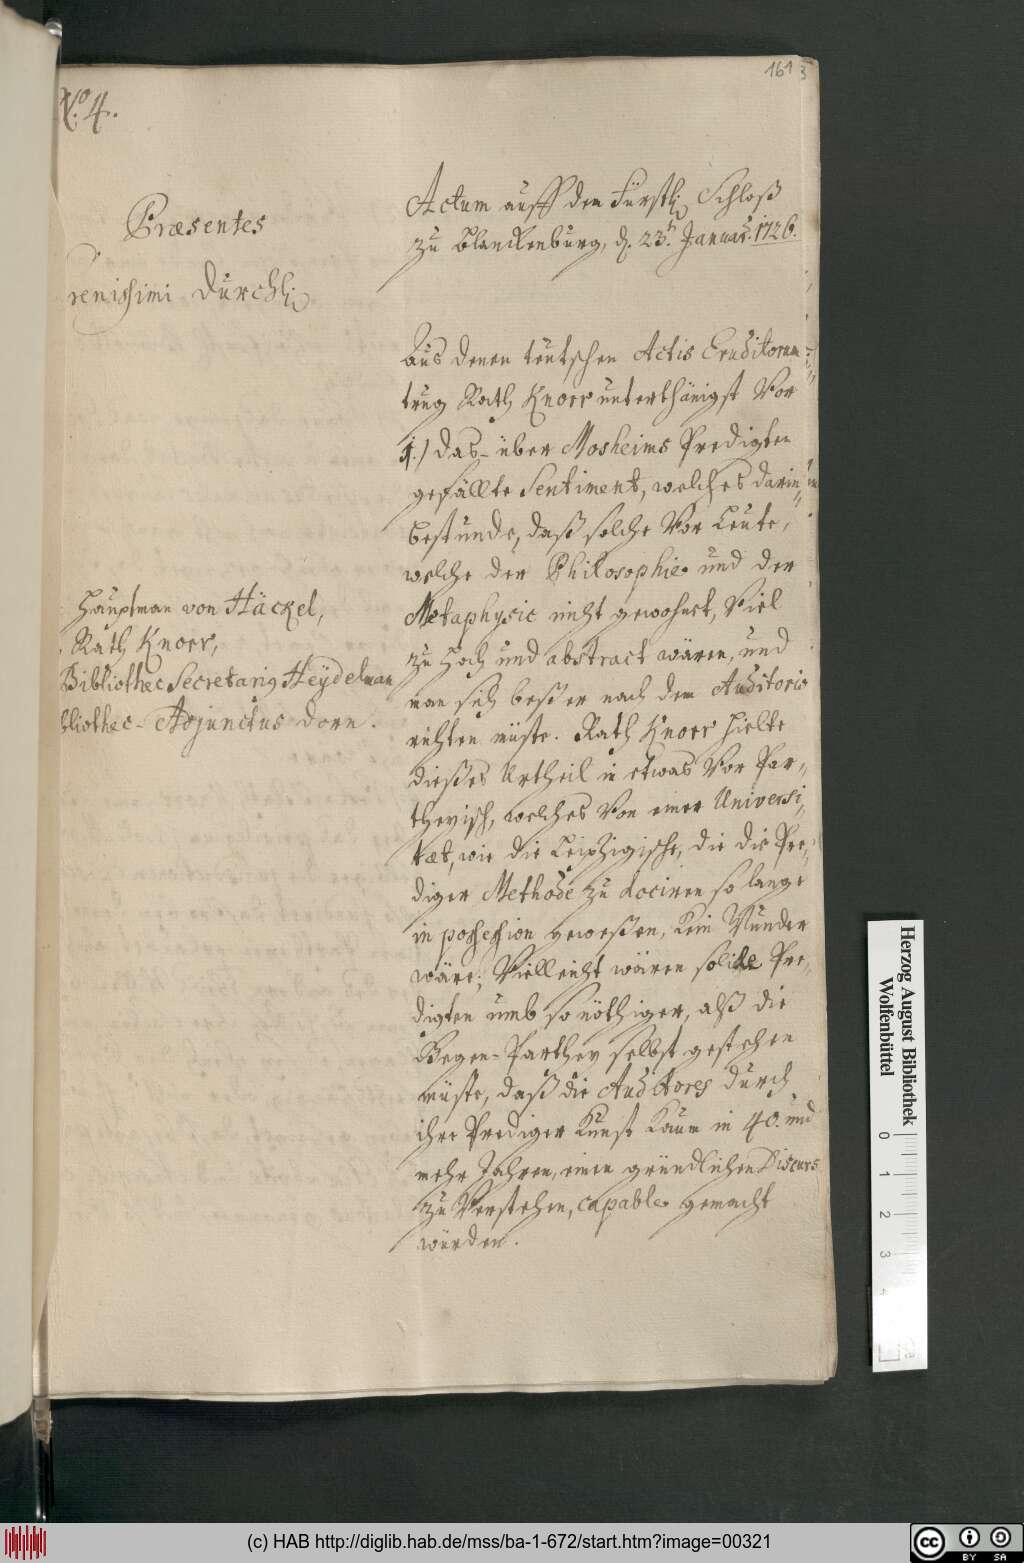 161 3
No. 4.
Præsentes
renissimi Durchl.
Hauptman von Häckel,
Rath Knorr,
Bibliothec Secretarig Heÿdelman
bliothec- Adjunctus Dorn.
Actum auff dem Fürstl. Schloß
zu Blanckenburg, d. 23t. Januar. 1726.
Aus denen teutschen Actis Eruditorum
trug Rath Knorr unterthänigst vor
1.) das- über Mosheims Predigten
gefällte Sentiment, welches darin„
bestunde, daß solche vor Leute,
welche der Philosophie und der
Metaphysic nicht gewohnet, viel
zu hoch und abstract wären, und
man sich beßer nach dem Auditorio
richten müste. Rath Knorr hielte
dießes Urtheil in etwas vor Par„
theyisch, welches von einer Universi„
tæt, wie die Leipzigische, die die Pre„
diger Methode zu dociren so lange
in possession geweßen, kein Wunder
wäre; Vielleicht wären solide Pre„
digten umb so nöthiger, alß die
Gegen-Parthey selbst gestehen
müste, daß die Auditores durch
ihre Prediger Kunst kaum in 40. und
mehr Jahren, einen gründlichen Discurs
zu verstehen, capable gemacht
würden.
Herzog August Bibliothek
Wolfenbüttel
0
1
2
3
4
(c) HAB http://diglib.hab.de/mss/ba-1-672/start.htm?image=00321
cc BY SA